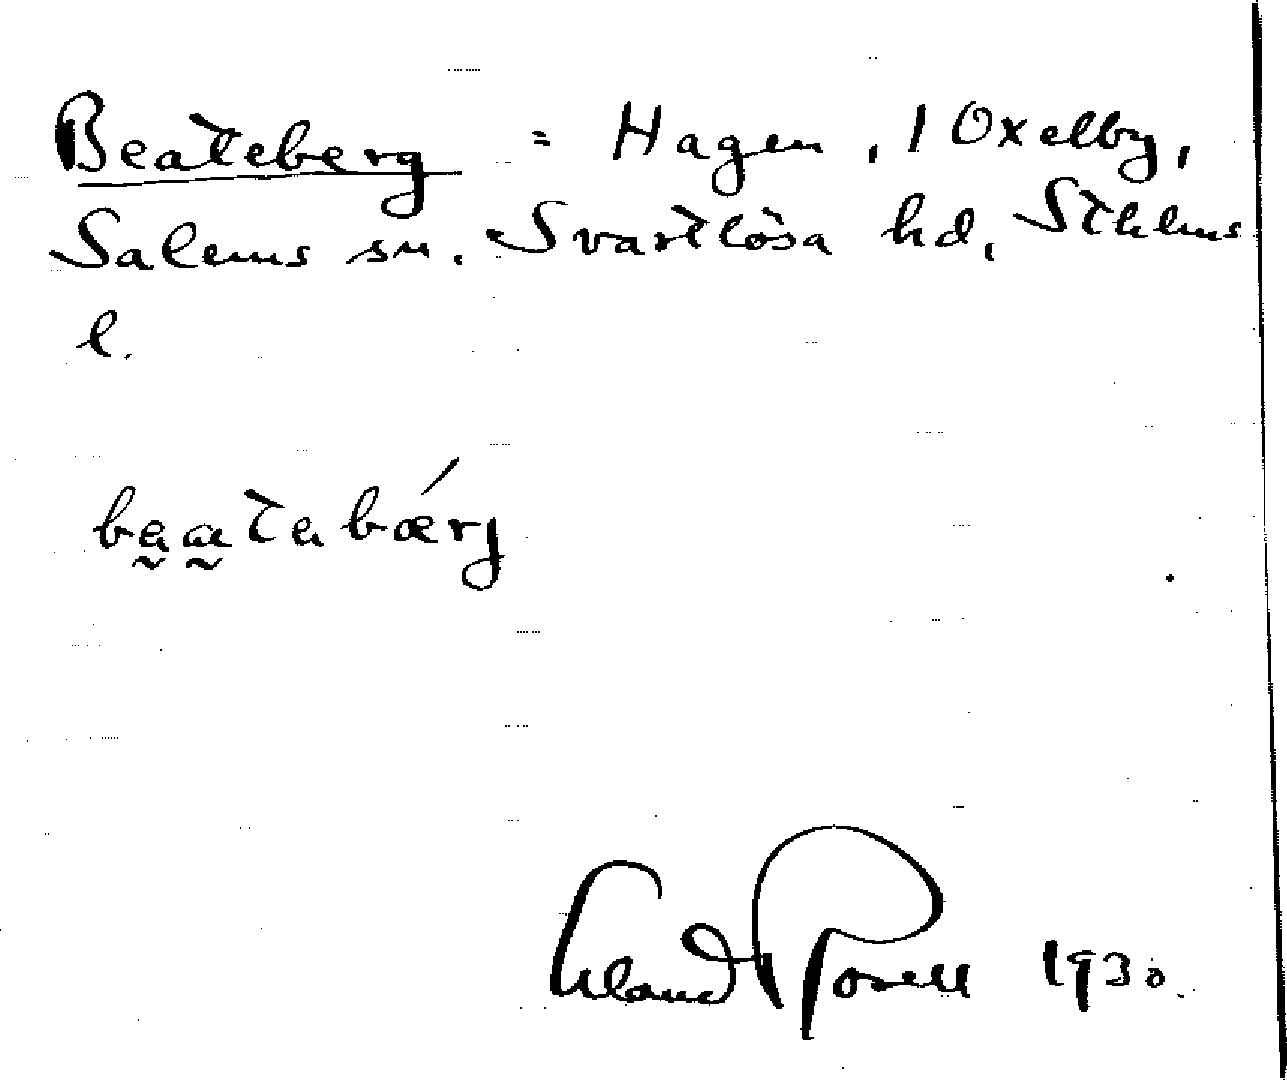 Beateberg = Hagen, 1 Oxelby,
Salems sn. Svartlösa hd, Sthlms
l.
bḛa̰tabǽrj
Erland Rosell 1930.